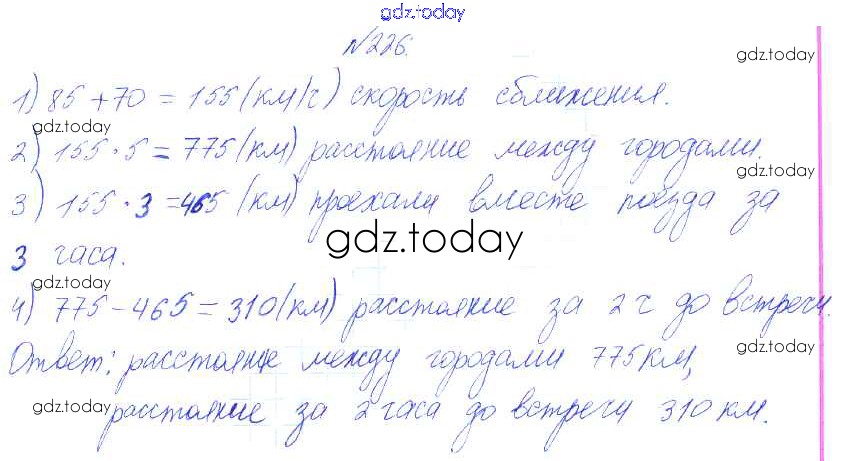 gdz.today
№226.
gdz.today
1) 85+70 = 155 (км/ч) скорость сближения.
gdz.today
2) 155·5 = 775 (км) расстояние между городами.
gdz.today
3) 155·3 = 465 (км) проехали вместе поезда за
3 часа.
gdz.today
gdz.today
4) 775-465 = 310 (км) расстояние за 2 ч до встречи.
Ответ: расстояние между городами 775 км,
gdz.today
gdz.today
расстояние за 2 часа до встречи 310 км.